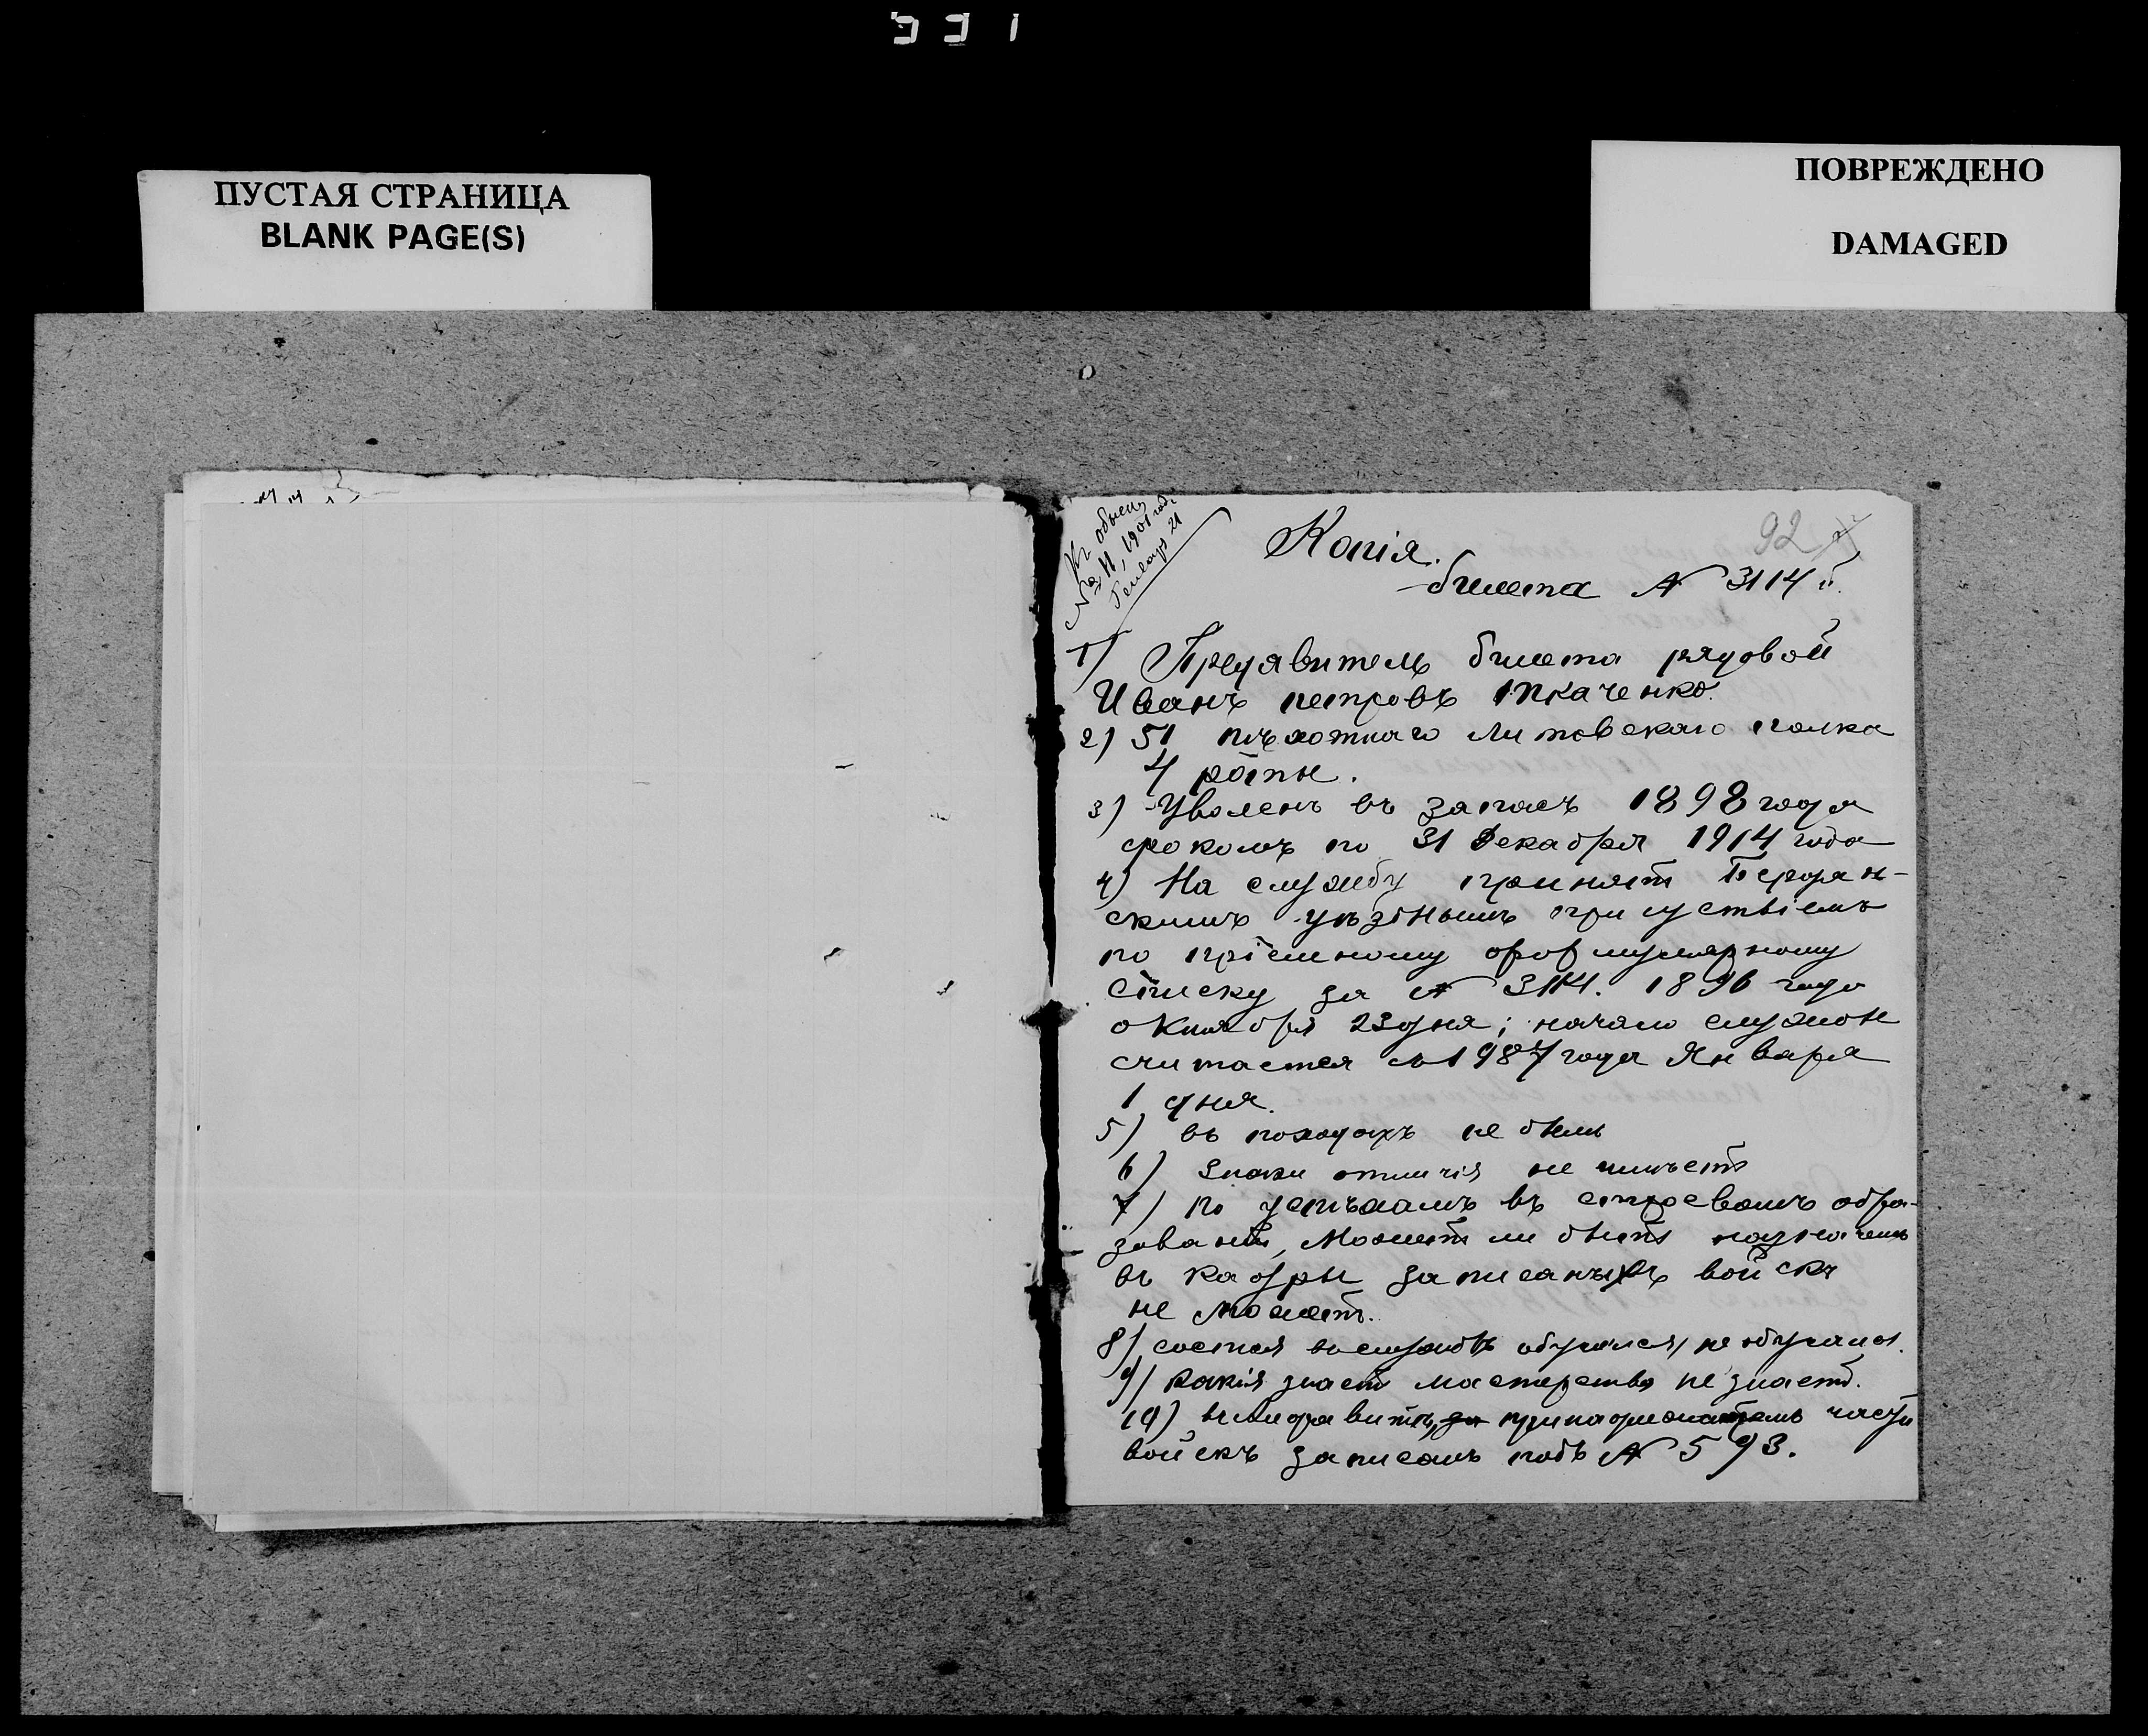 ПУСТАЯ СТРАНИЦА
BLANK PAGE(S)
ПОВРЕЖДЕНО
DAMAGED
92
Копія
билета № 3114
1) Предявитель билета рядовой
Иванъ петровъ ткаченко.
2) 51 пѣхотнаго Литовскаго полка
4 роты.
3) Уволенъ въ запасъ 1898 года
срокомъ по 31 Декабря 1914 года
4) На службу принятъ Бердян-
скимъ уѣзднымъ присуствіемъ
по пріемному формулярному
списку за № 3114. 1896 года
октября 23 дня; начало службы
считается съ 1987 года Января
1 дня.
5) въ походахъ не былъ
6) Знаки отличія не имѣетъ
7) по успѣхамъ въ строевомъ обра-
зованіи, Можетъ ли быть назначенъ
въ кадры записаныхъ войскъ
не можетъ.
8) состоя вслужбѣ обучался, не обучался.
9) какія знаетъ мастерства не знаетъ.
10) части
войскъ записанъ подъ № 593.